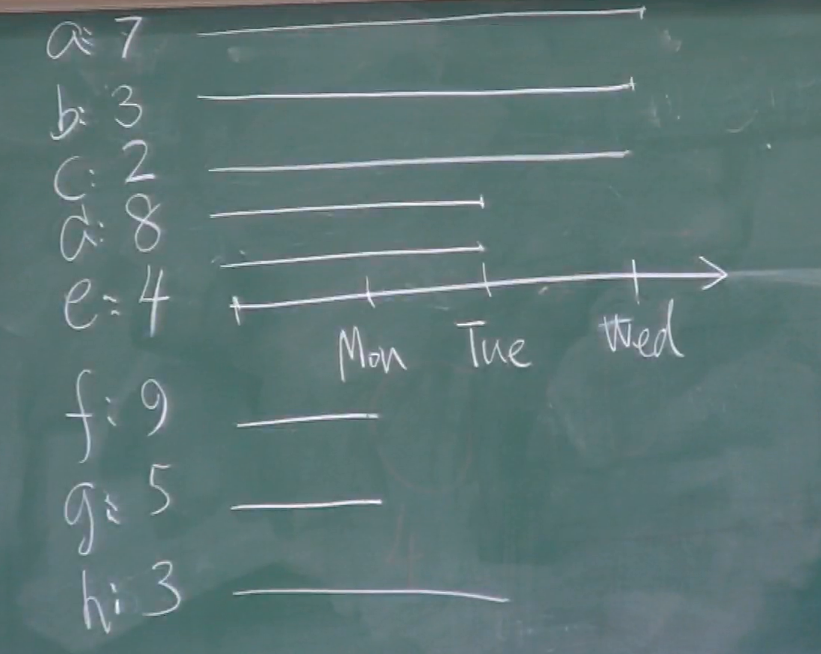 a: 7
b: 3
c: 2
d: 8
e: 4
Mon Tue Wed
f: 9
g: 5
h: 3